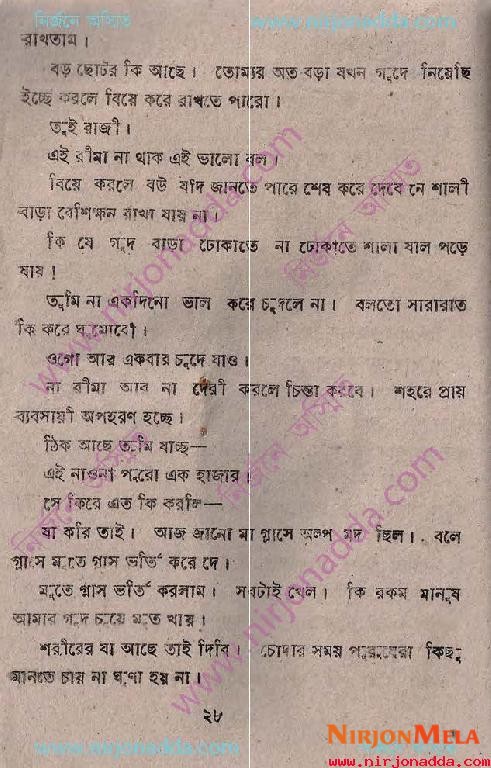 নির্জনে অস্মিত www.nirjonadda.com
রাখতাম।
বড় ছোটর কি আছে। তোমার অত বড়া যখন গুদে নিয়েছি
ইচ্ছে করলে বিয়ে করে রাখতে পারো।
তুই রাজী।
এই রীমা না থাক এই ভালো বল।
বিয়ে করলে বউ যদি জানতে পারে শেষ করে দেবে নে শালী
বাড়া বেশিক্ষন রাখা যায় না।
কি যে গুদ বাড়া ঢোকাতে না ঢোকাতে শালা মাল পড়ে
যায়!
তুমি না একদিনো ভাল করে চুদলে না। বলতো সারারাত
কি করে ঘুমোবো।
ওগো আর একবার চুদে যাও।
না রীমা আর না দেরী করলে চিন্তা করবে। শহরে প্রায়
ব্যবসায়ী অপহরণ হচ্ছে।
ঠিক আছে তুমি যাচ্ছ—
এই নাওনা পুরো এক হাজার।
সে কিরে এত কি করলি—
যা করি তাই। আজ জানো মা গ্লাসে অল্প মদ ছিল। বলে
গ্লাসে মুতে গ্লাস ভর্তি করে দে।
মুতে গ্লাস ভর্তি করলাম। সবটাই খেল। কি রকম মানুষ
আমার গুদ চুয়ে মুত খায়।
শরীরের যা আছে তাই দিবি। চোদার সময় পুরুষেরা কিছু
মানতে চায় না ঘৃণা হয় না।
২৮
NIRJONMELA
www.nirjonadda.com
www.nirjonadda.com